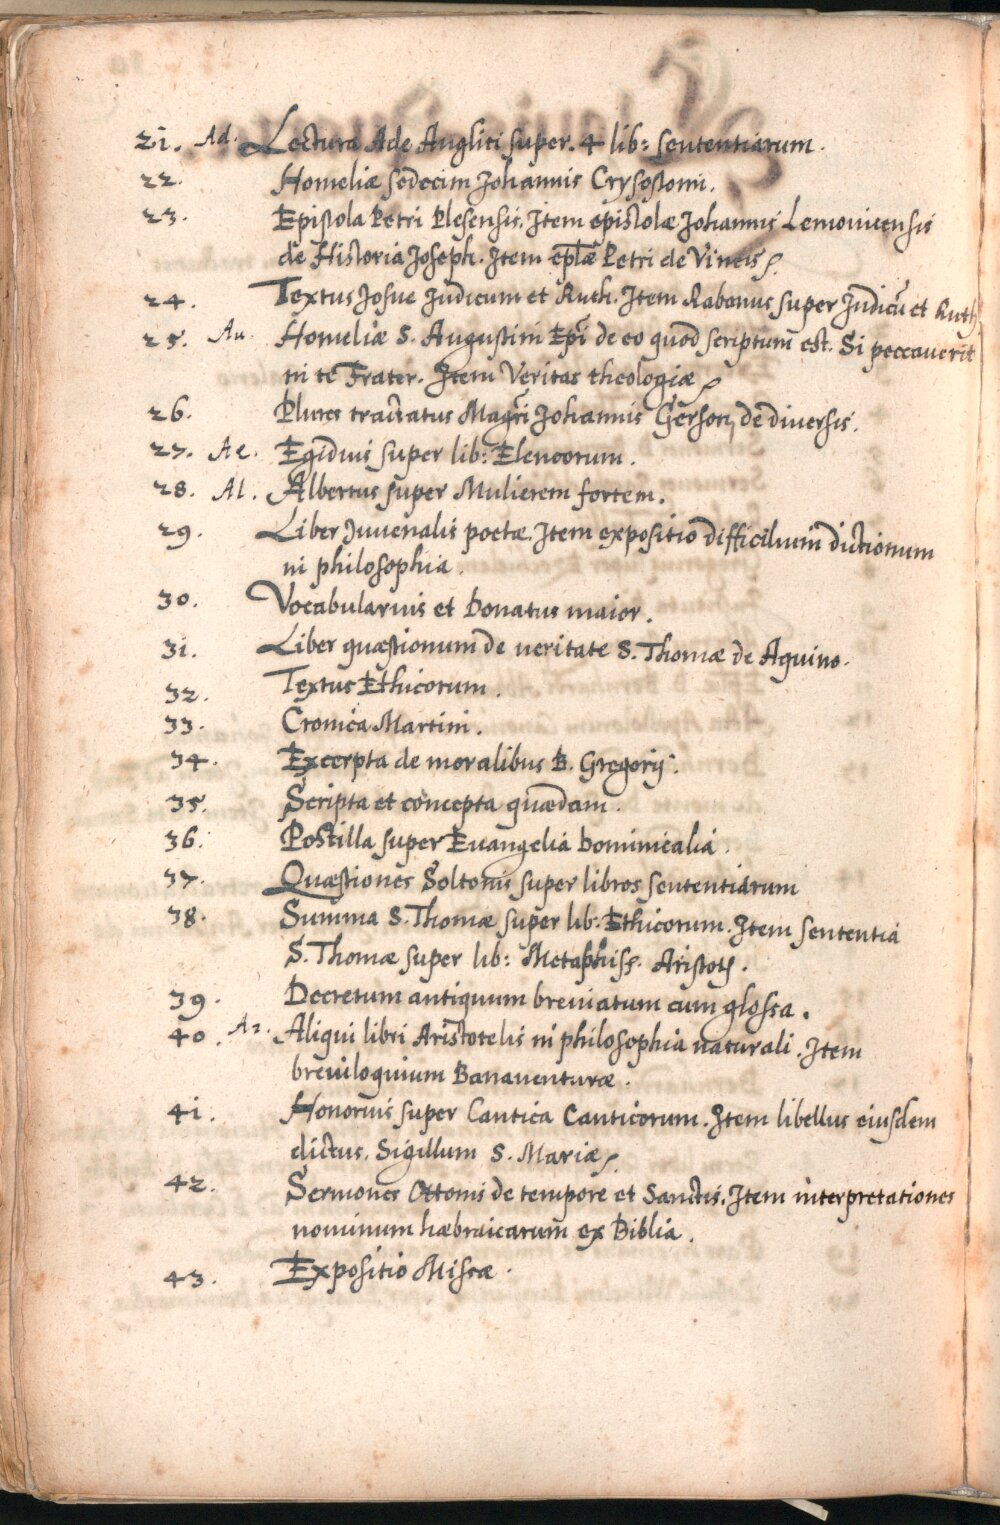 21. Ad. Lectura Ade Anglici super. 4 lib: sententiarum.
22. Homeliæ sedecim Johannis Crysostomi.
23. Epistola Petri Plesensis. Item epistolæ Johannis Lemouicensis
de Historia Joseph. Item eplæ Petri de Vineis.
24. Textus Josue Judicum et Ruth. Item Rabanus super Judicū et Ruth.
25. Au. Homeliæ S. Augustini Epī de eo quod scriptum est. Si peccauerit
in te Frater. Item Veritas theologiæ.
26. Plures tractatus Magrī Johannis Gerson, de diuersis.
27. Ae. Egidius super lib: Elencorum.
28. Al. Albertus super Mulierem fortem.
29. Liber Juuenalis poetæ. Item expositio difficilium dictionum
in philosophia.
30. Vocabularius et Donatus maior.
31. Liber quæstionum de ueritate S. Thomæ de Aquino.
32. Textus Ethicorum.
33. Cronica Martini.
34. Excerpta de moralibus B. Gregorij.
35. Scripta et concepta quædam.
36. Postilla super Euangelia Dominicalia.
37. Quæstiones Soltonis super libros sententiarum
38. Summa S. Thomæ super lib: Ethicorum. Item sententia
S. Thomæ super lib: Metaphiss. Aristots.
39. Decretum antiquum breuiatum cum glossa.
40. Ar. Aliqui libri Aristotelis in philosophia naturali. Item
breuiloquium Banauenturæ.
41. Honorius super Cantica Canticorum. Item libellus eiusdem
dictus, Sigillum S. Mariæ.
42. Sermones Ottonis de tempore et Sanctis. Item interpretationes
nominum hæbraicarum ex Biblia.
43. Expositio Missæ.